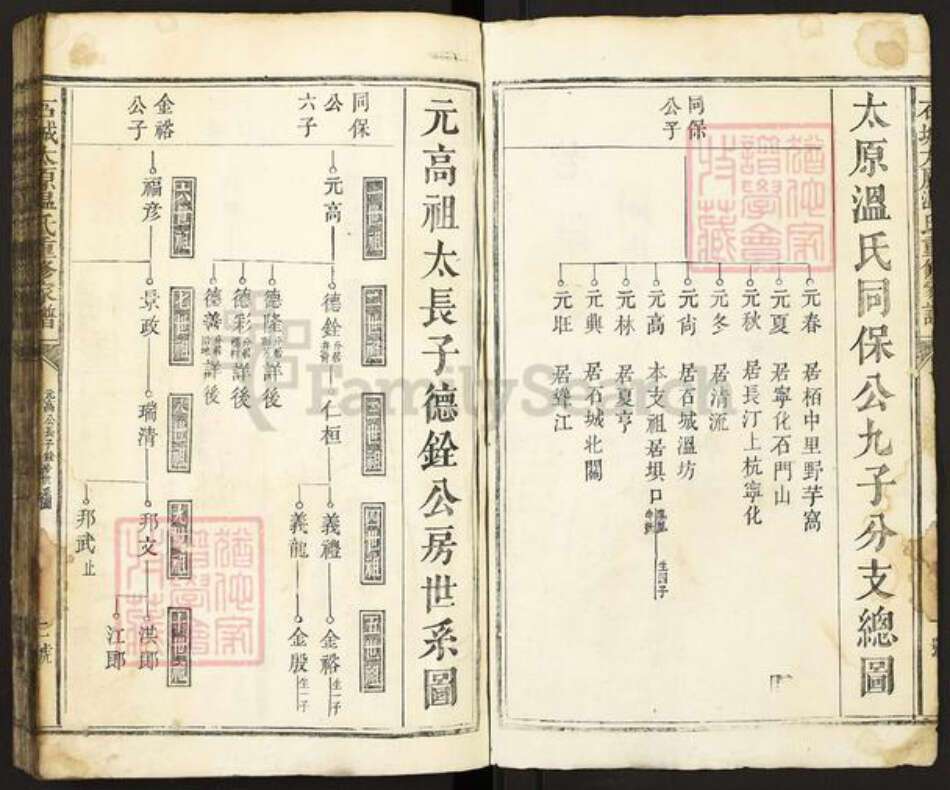 太原溫氏同保公九子分支總圖
同保
公子
元春 居栢中里野芋窩
元夏 居寧化石門山
元秋 居長汀上杭寧化
元冬 居清流
元尙 居石城溫坊
元高 本支祖居埧口 生四子
元林 居夏亨
元典 居石城北關
元旺 居 江
元高祖太長子德銓公房世系圖
同保
公
六子
一世祖
元高
二世祖
德銓
德隆 詳後
德彩 詳後
德善 詳後
三世祖
仁桓
四世祖
義禮
義龍
五世祖
金裕 生一子
金殷 生一子
金裕
公子
六世祖
福彦
七世祖
景政
八世祖
瑞清
九世祖
邦文
邦武 止
十世祖
洪郎
江郎
石城太原溫氏重修家譜
二號
FamilySearch